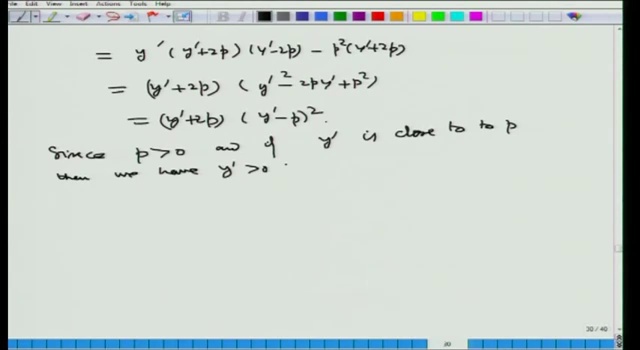 File Edit View Insert Actions Tools Help
= y' (y'+2p) (y'-2p) - p²(y'+2p)
= (y'+2p) (y'² - 2py' + p²)
= (y'+2p) (y'-p)².
Since p>0 and if y' is close to to p
then we have y' >0 .
30 / 40
30